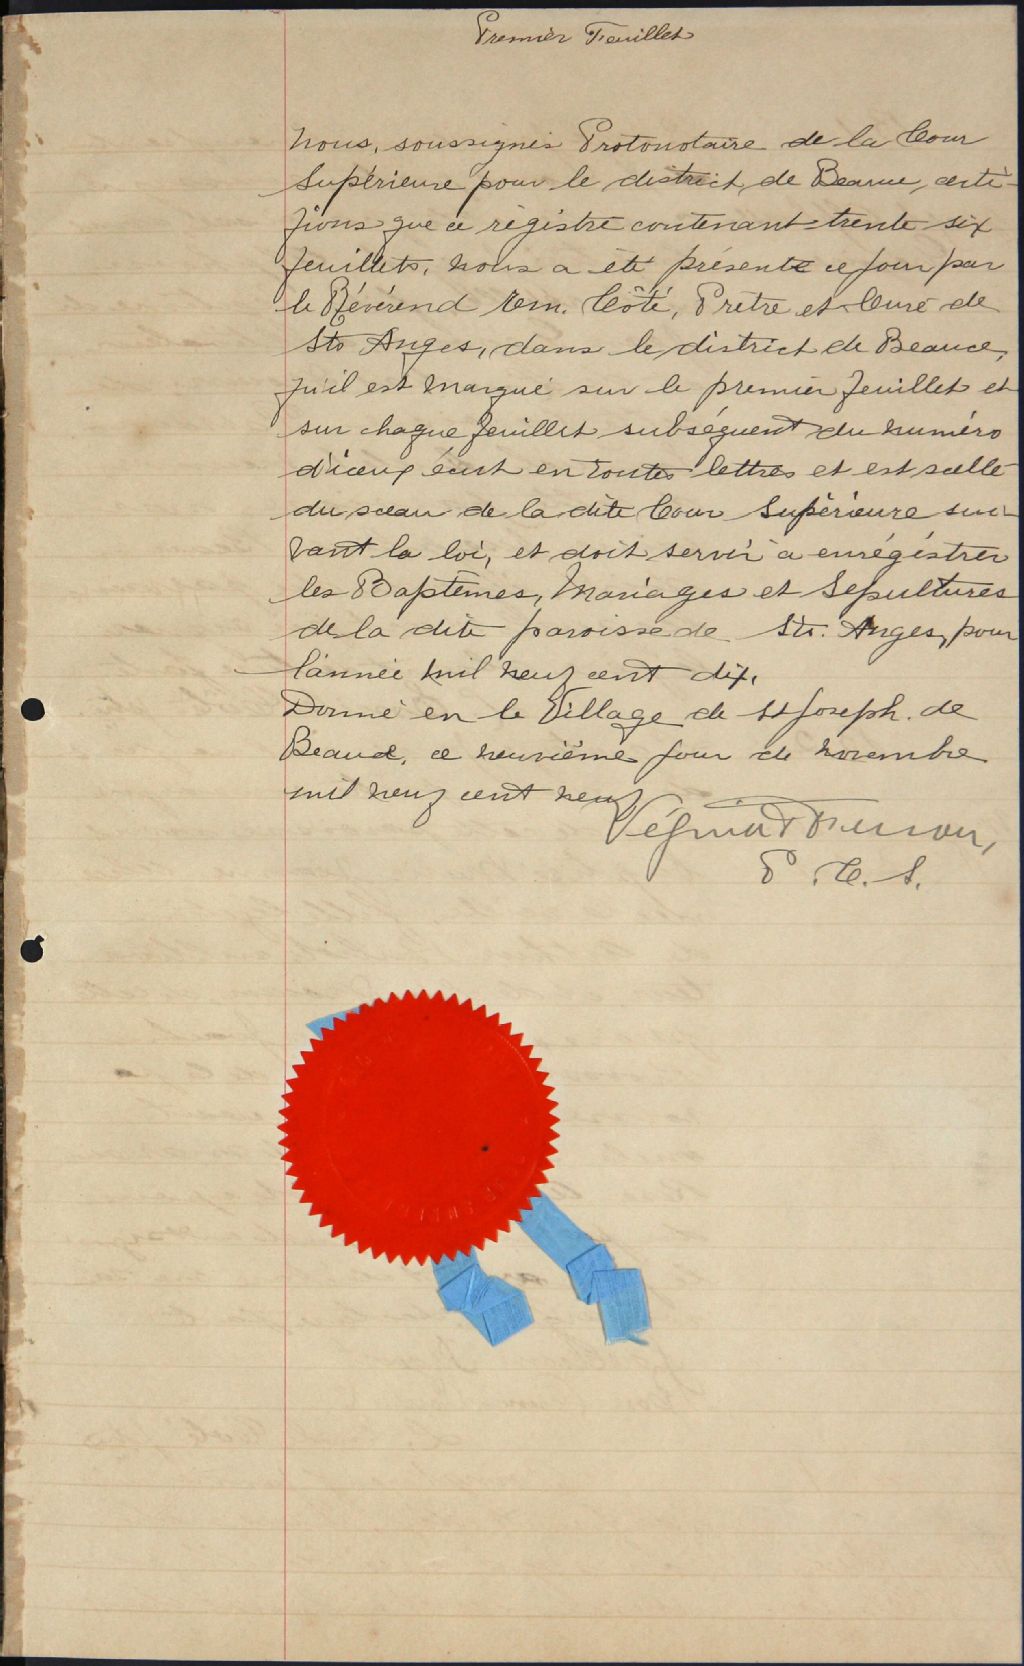 Premier Feuillet
Nous, soussignés Protonotaire de la Cour
Supérieure pour le district de Beauce, certi-
fions que ce régistre contenant trente six
feuillets, nous a été présenté ce jour par
le Révérend Em. Côté, Prêtre et Curé de
Sts Anges, dans le district de Beauce,
qu'il est marqué sur le premier feuillet et
sur chaque feuillet subséquent du numéro
d'iceux écrit en toutes lettres et est scellé
du sceau de la dite Cour Supérieure sui-
vant la loi, et doit servir à enrégistrer
les Baptêmes, Mariages et Sépultures
de la dite paroisse de Sts. Anges, pour
l'année mil neuf cent dix.
Donné en le Village de St Joseph de
Beauce, ce neuvième jour de novembre
mil neuf cent neuf
P. C. S.